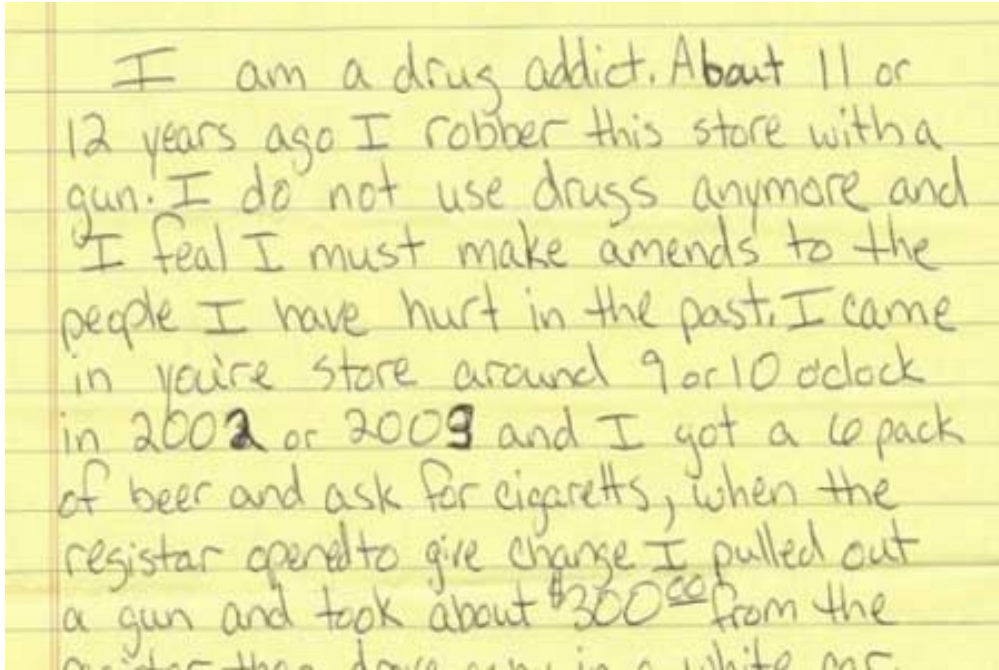 I am a drug addict. About 11 or
12 years ago I robber this store with a
gun. I do not use drugs anymore and
I feal I must make amends to the
people I have hurt in the past. I came
in youire store around 9 or 10 oclock
in 2002 or 2003 and I got a 6 pack
of beer and ask for cigaretts, when the
registar opened to give change I pulled out
a gun and took about $300.00 from the
then drove away in a white car